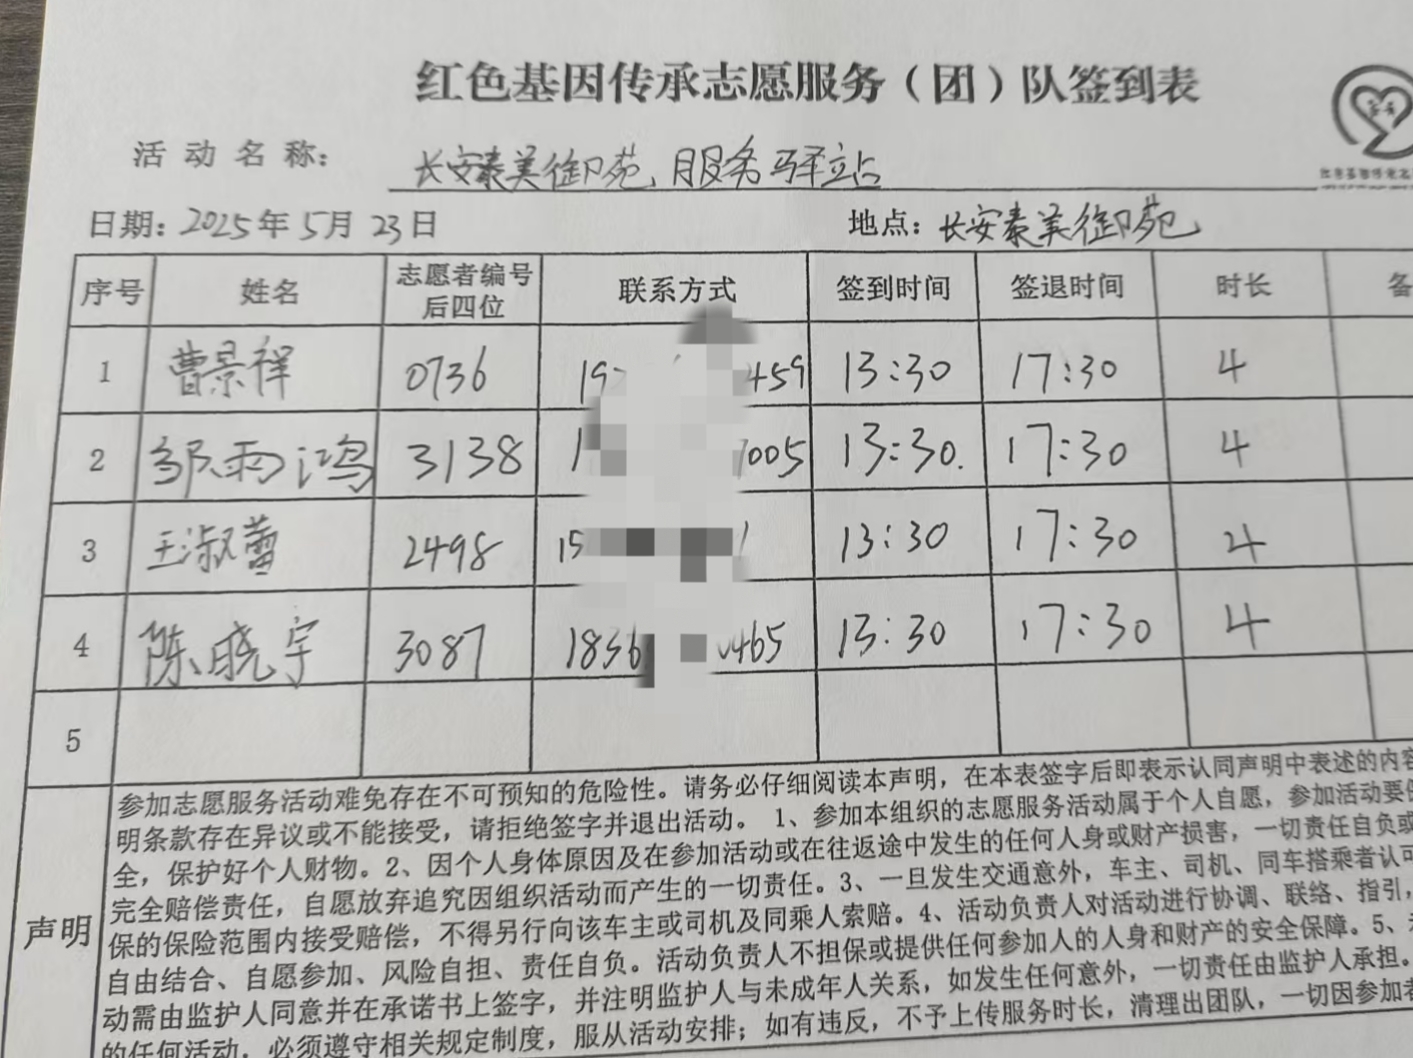 红色基因传承志愿服务（团）队签到表
活动名称：长安泰美御苑服务驿站
日期：2025年5月23日 地点：长安泰美御苑
序号 姓名 志愿者编号后四位 联系方式 签到时间 签退时间 时长 备
1 曹景祥 0736 19 459 13:30 17:30 4
2 邹雨鸿 3138 1 005 13:30. 17:30 4
3 王淑蕾 2498 15 13:30 17:30 4
4 陈晓宇 3087 1836 465 13:30 17:30 4
5
声明
参加志愿服务活动难免存在不可预知的危险性。请务必仔细阅读本声明，在本表签字后即表示认同声明中表述的内容
明条款存在异议或不能接受，请拒绝签字并退出活动。 1、参加本组织的志愿服务活动属于个人自愿，参加活动要
全，保护好个人财物。2、因个人身体原因及在参加活动或在往返途中发生的任何人身或财产损害，一切责任自负或
完全赔偿责任，自愿放弃追究因组织活动而产生的一切责任。3、一旦发生交通意外，车主、司机、同车搭乘者认可
保的保险范围内接受赔偿，不得另行向该车主或司机及同乘人索赔。4、活动负责人对活动进行协调、联络、指引，
自由结合、自愿参加、风险自担、责任自负。活动负责人不担保或提供任何参加人的人身和财产的安全保障。5、
动需由监护人同意并在承诺书上签字，并注明监护人与未成年人关系，如发生任何意外，一切责任由监护人承担。
的任何活动，必须遵守相关规定制度，服从活动安排；如有违反，不予上传服务时长，清理出团队，一切因参加者